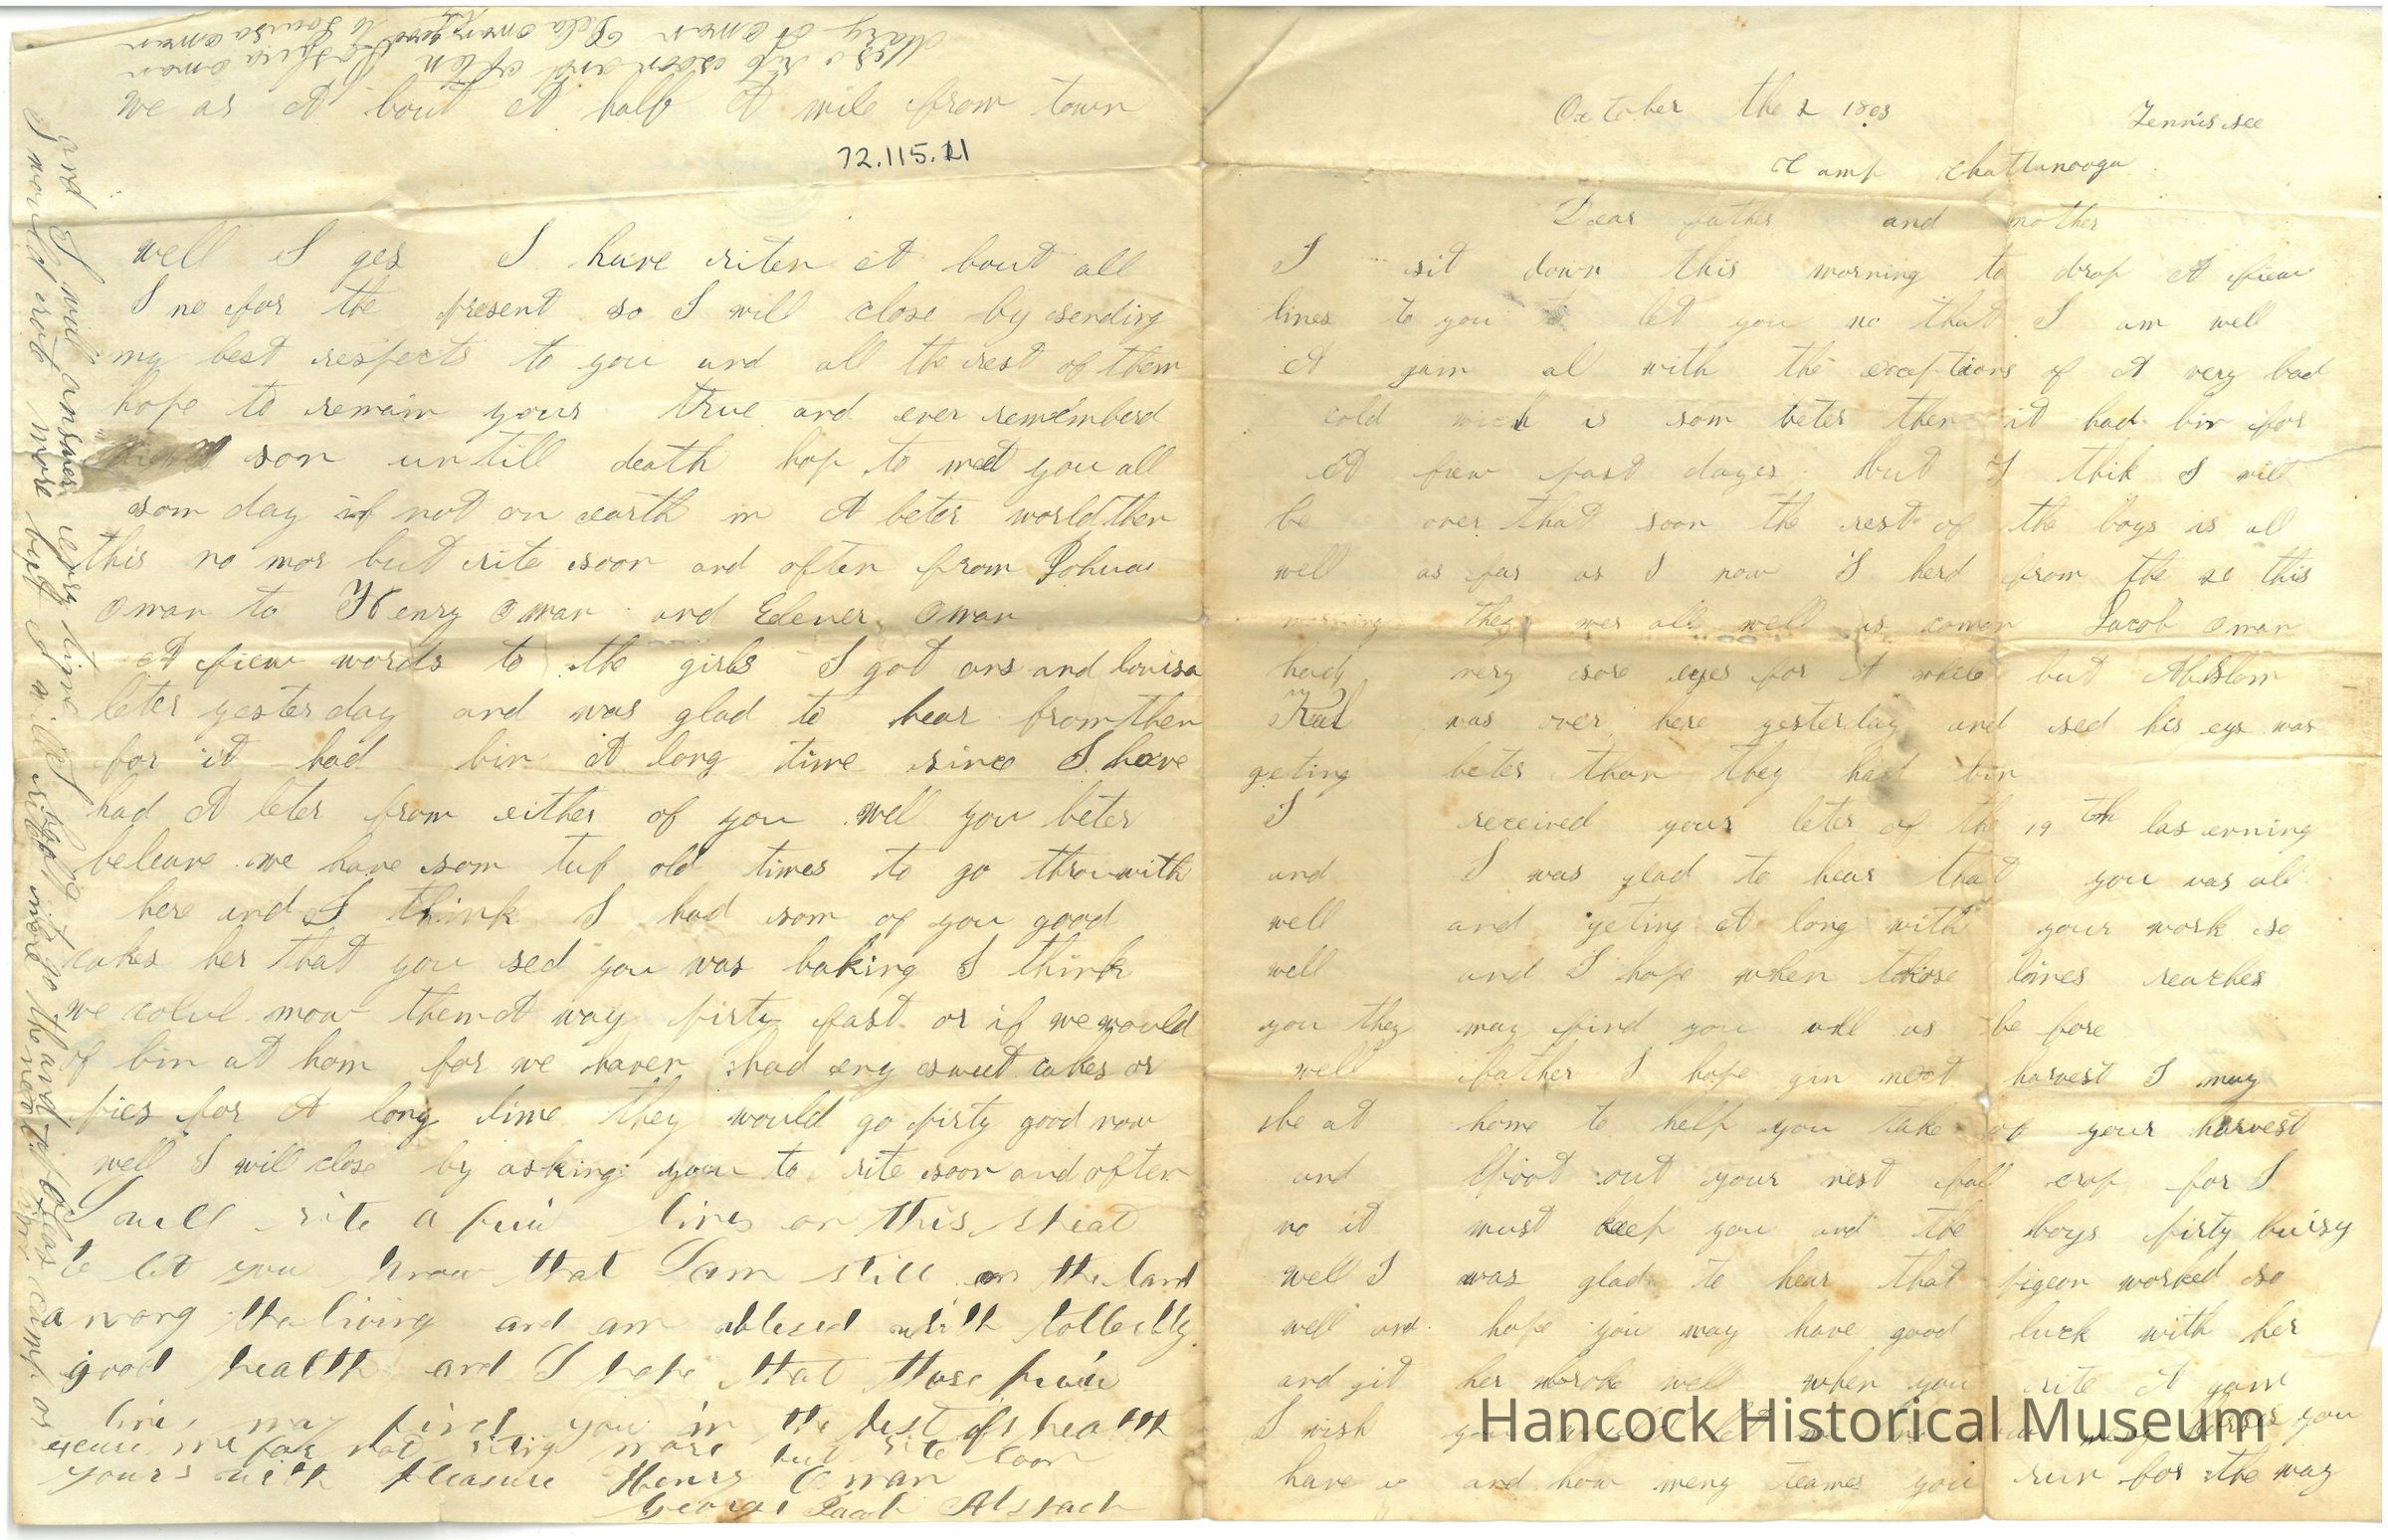 October the 2 1863 Tennis see
Camp Chattanooga
Dear father and mother
I sit down this morning to drop A fiew
lines to you to let you no that I am well
A gain al with the exceptions of A very bad
cold wich is som beter then it had bin for
A fiew past dayes but I thik I will
be over that soon the rest of the boys is all
well as far as I now I herd from the 20 this
morning they wer all well as comon Jacob Oman
hady very sore eyes for A while but Abslom
was over here yesterday and sed his eys was
geting beter than they had bin
I received your leter of the 19th las evning
and I was glad to hear that you was all
well and geting A long with your work so
well and I hope when those lines reaches
you they may find you all as be fore
well father I hope gin next harvest I may
be at home to help you take of your harvest
and poot out your nest fall crop for I
no it must keep you and the boys pirty buisy
well I was glad to hear that pigeon worked so
well and hope you may have good luck with her
and git her broke well when you rite A gain
I wish you horses you
have is and how meny teames you run for the way
Hancock Historical Museum
we as A bout A half A mile from town
72.115.21
well I ges I have riten A bout all
I no for the present so I will close by sending
my best respects to you and all the rest of them
hope to remain your true and ever rememberd
son untill death hop to meet you all
som day if not on earth in A beter world then
this no mor but rite soon and often from Johua
Oman to Henry Oman and Edener Oman
A fiew words to the girls I got ans and louisa
leter yesterday and was glad to hear from then
for it had bin A long time since I have
had A leter from either of you well you beter
beleave we have som tuf old times to go throu with
here and I think I had som of you good
cakes her that you sed you was baking I think
we colul mow them A way pirty fast or if we would
of bin at hom for we haven shad eny sweet cakes or
pies for A long time they would go pirty good now
well I will close by asking you to rite soon and often
I will rite a fiew lines on this sheat
to let you know that I am still on the land
a mong the living and am blesed with tollerbly
good health and I hope that those fiew
lines may find you in the best of health
excuse me for not riting more but rite soon
yours with pleasure Henry Oman
George Jacob Alspach
And I will answer evry time
I would rote more but I will
rite soon and often
Mary A Oman Louisa oman